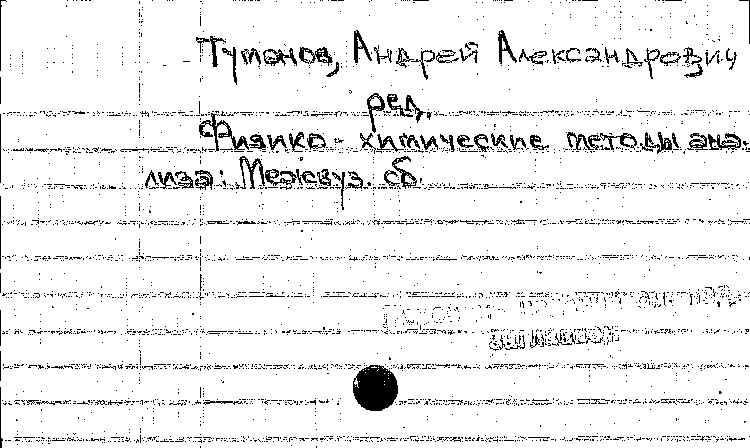 Туманов, Андрей Александрович,
ред.
Физико-химические методы ана-
лиза: Межвуз. сб.